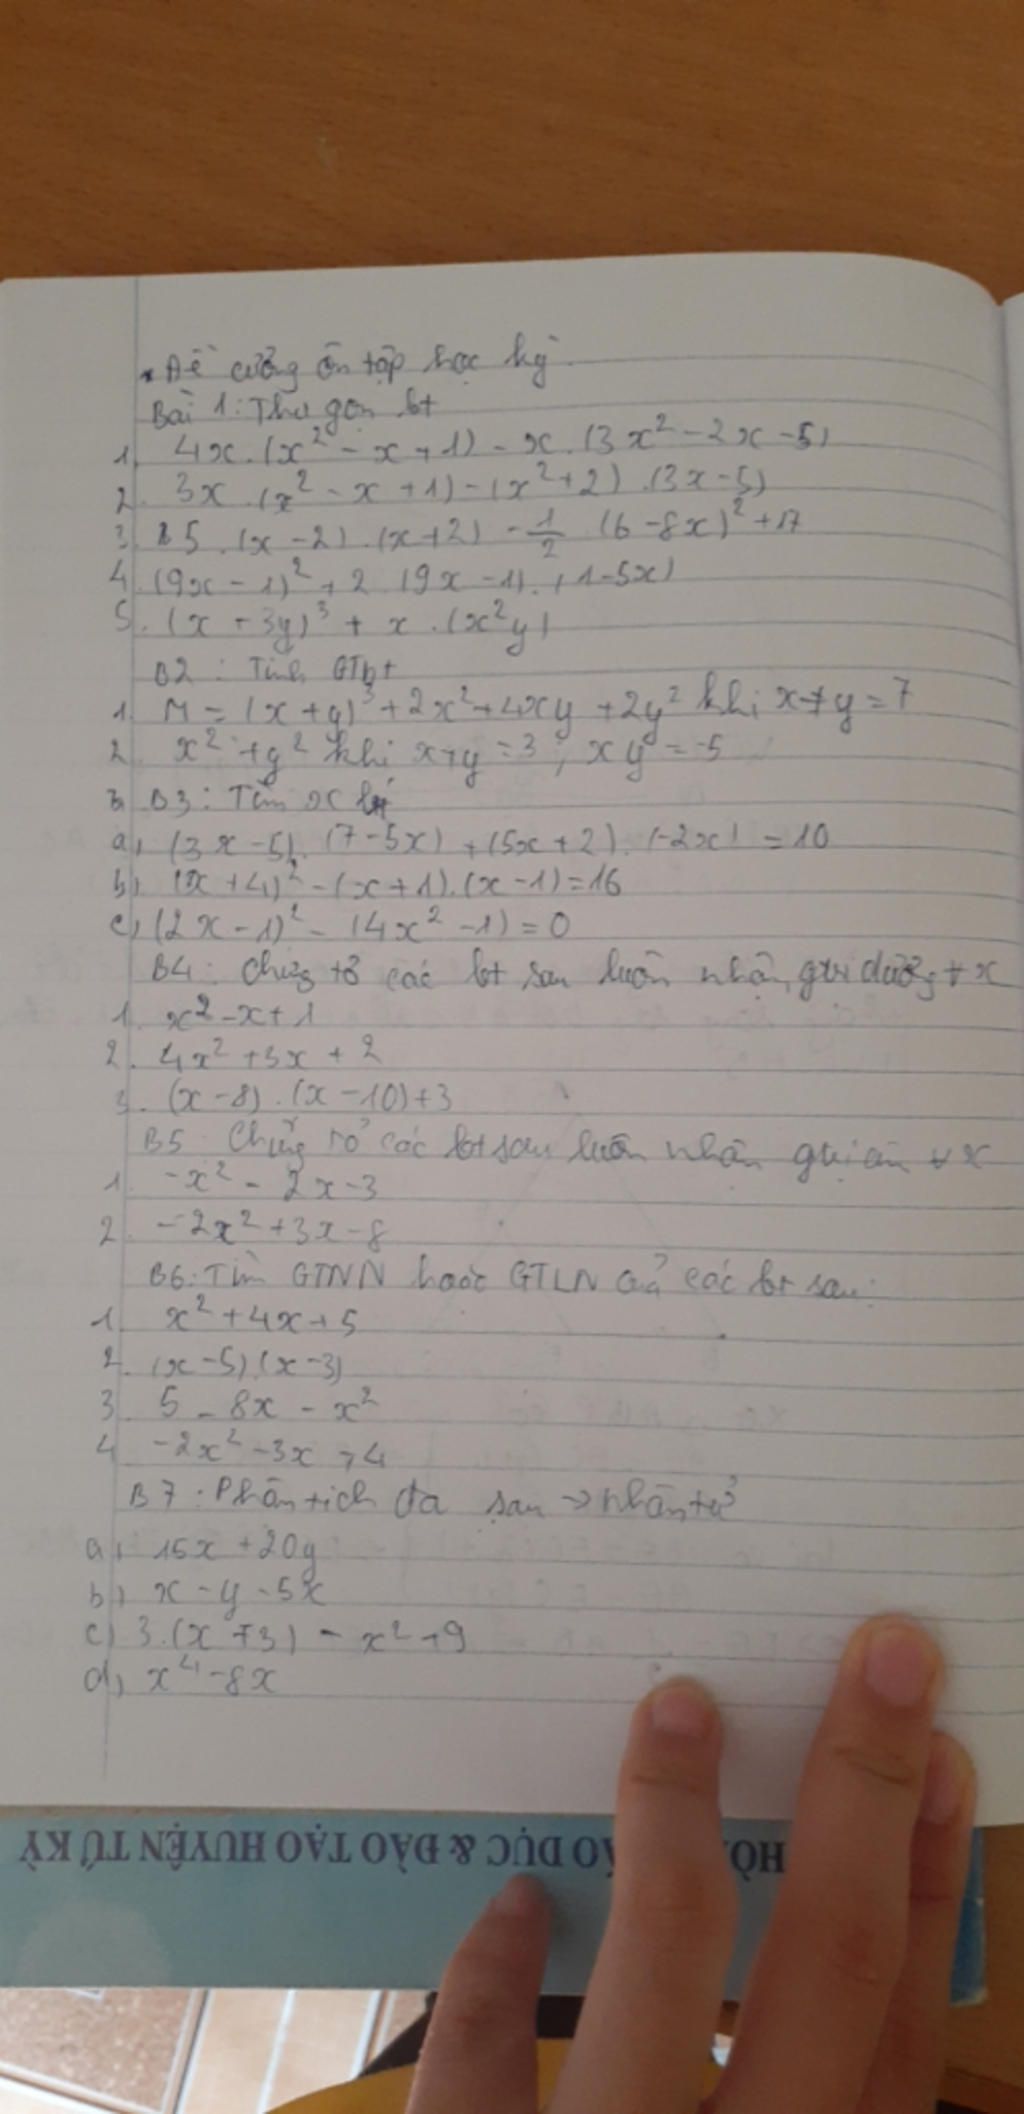 Đề cương ôn tập học kỳ
Bài 1: Thu gọn bt
1. 4x.(x² - x + 1) - x.(3x² - 2x - 5)
2. 3x.(x² - x + 1) - (x² + 2).(3x - 5)
3. 5.(x - 2).(x + 2) - 1/2 (6 - 8x)² + 17
4. (9x - 1)² + 2(9x - 1).(1 - 5x)
5. (x + 3y)³ + x.(x²y)
B2: Tính GTbt
1. M = (x + y)³ + 2x² + 4xy + 2y² khi x + y = 7
2. x² + y² khi x + y = 3 ; xy = -5
B3: Tìm x
a) (3x - 5).(7 - 5x) + (5x + 2).(-2x) = 10
b) (x + 4)² - (x + 1).(x - 1) = 16
c) (2x - 1)² - (4x² - 1) = 0
B4: Chứng tỏ các bt sau luôn nhận gtri dương ∀ x
1. x² - x + 1
2. 4x² + 3x + 2
3. (x - 8).(x - 10) + 3
B5 Chứng tỏ các bt sau luôn nhận gtri âm ∀ x
1. -x² - 2x - 3
2. -2x² + 3x - 8
B6: Tìm GTNN hoặc GTLN củả các bt sau:
1. x² + 4x + 5
2. (x - 5).(x - 3)
3. 5 - 8x - x²
4 -2x² - 3x + 4
B7: Phân tích đa sau -> nhân tử
a) 15x + 20y
b) x - y - 5x
c) 3.(x + 3) - x² + 9
d) x⁴ - 8x
HÒNG GIÁO DỤC & ĐÀO TẠO HUYỆN TỨ KỲ